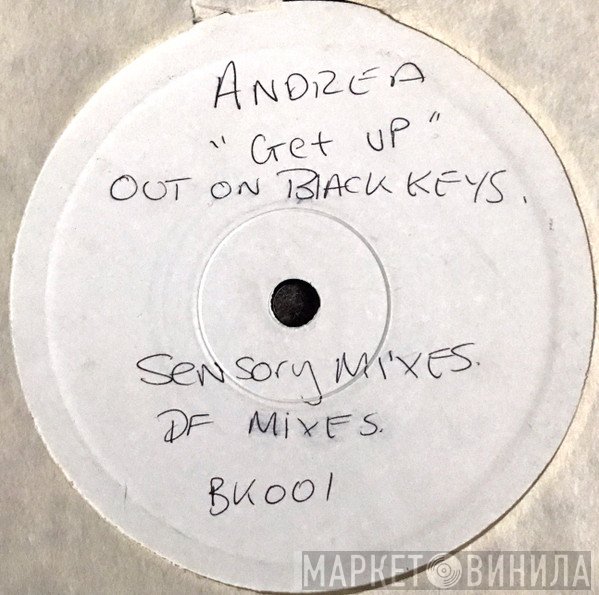 ANDREA
"Get UP"
OUT ON BLACK KEYS.
SENSORY MIXES.
DF MIXES.
BK001
МАРКЕТ ВИНИЛА